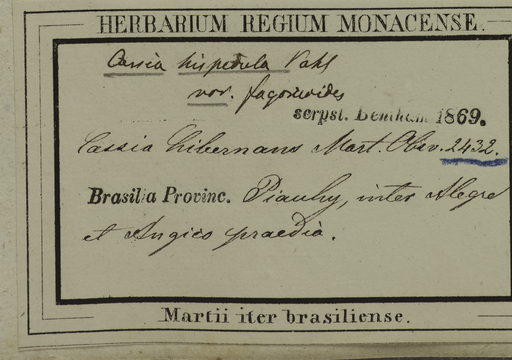 HERBARIUM REGIUM MONACENSE.
Cassia hispidula Vahl
var. fagonioides
scrpst. Bentham 1869.
Cassia hibernans Mart. Obsv. 2432.
Brasilia Provinc. Piauhy, inter Alegre
et Angico praedia.
Martii iter brasiliense.